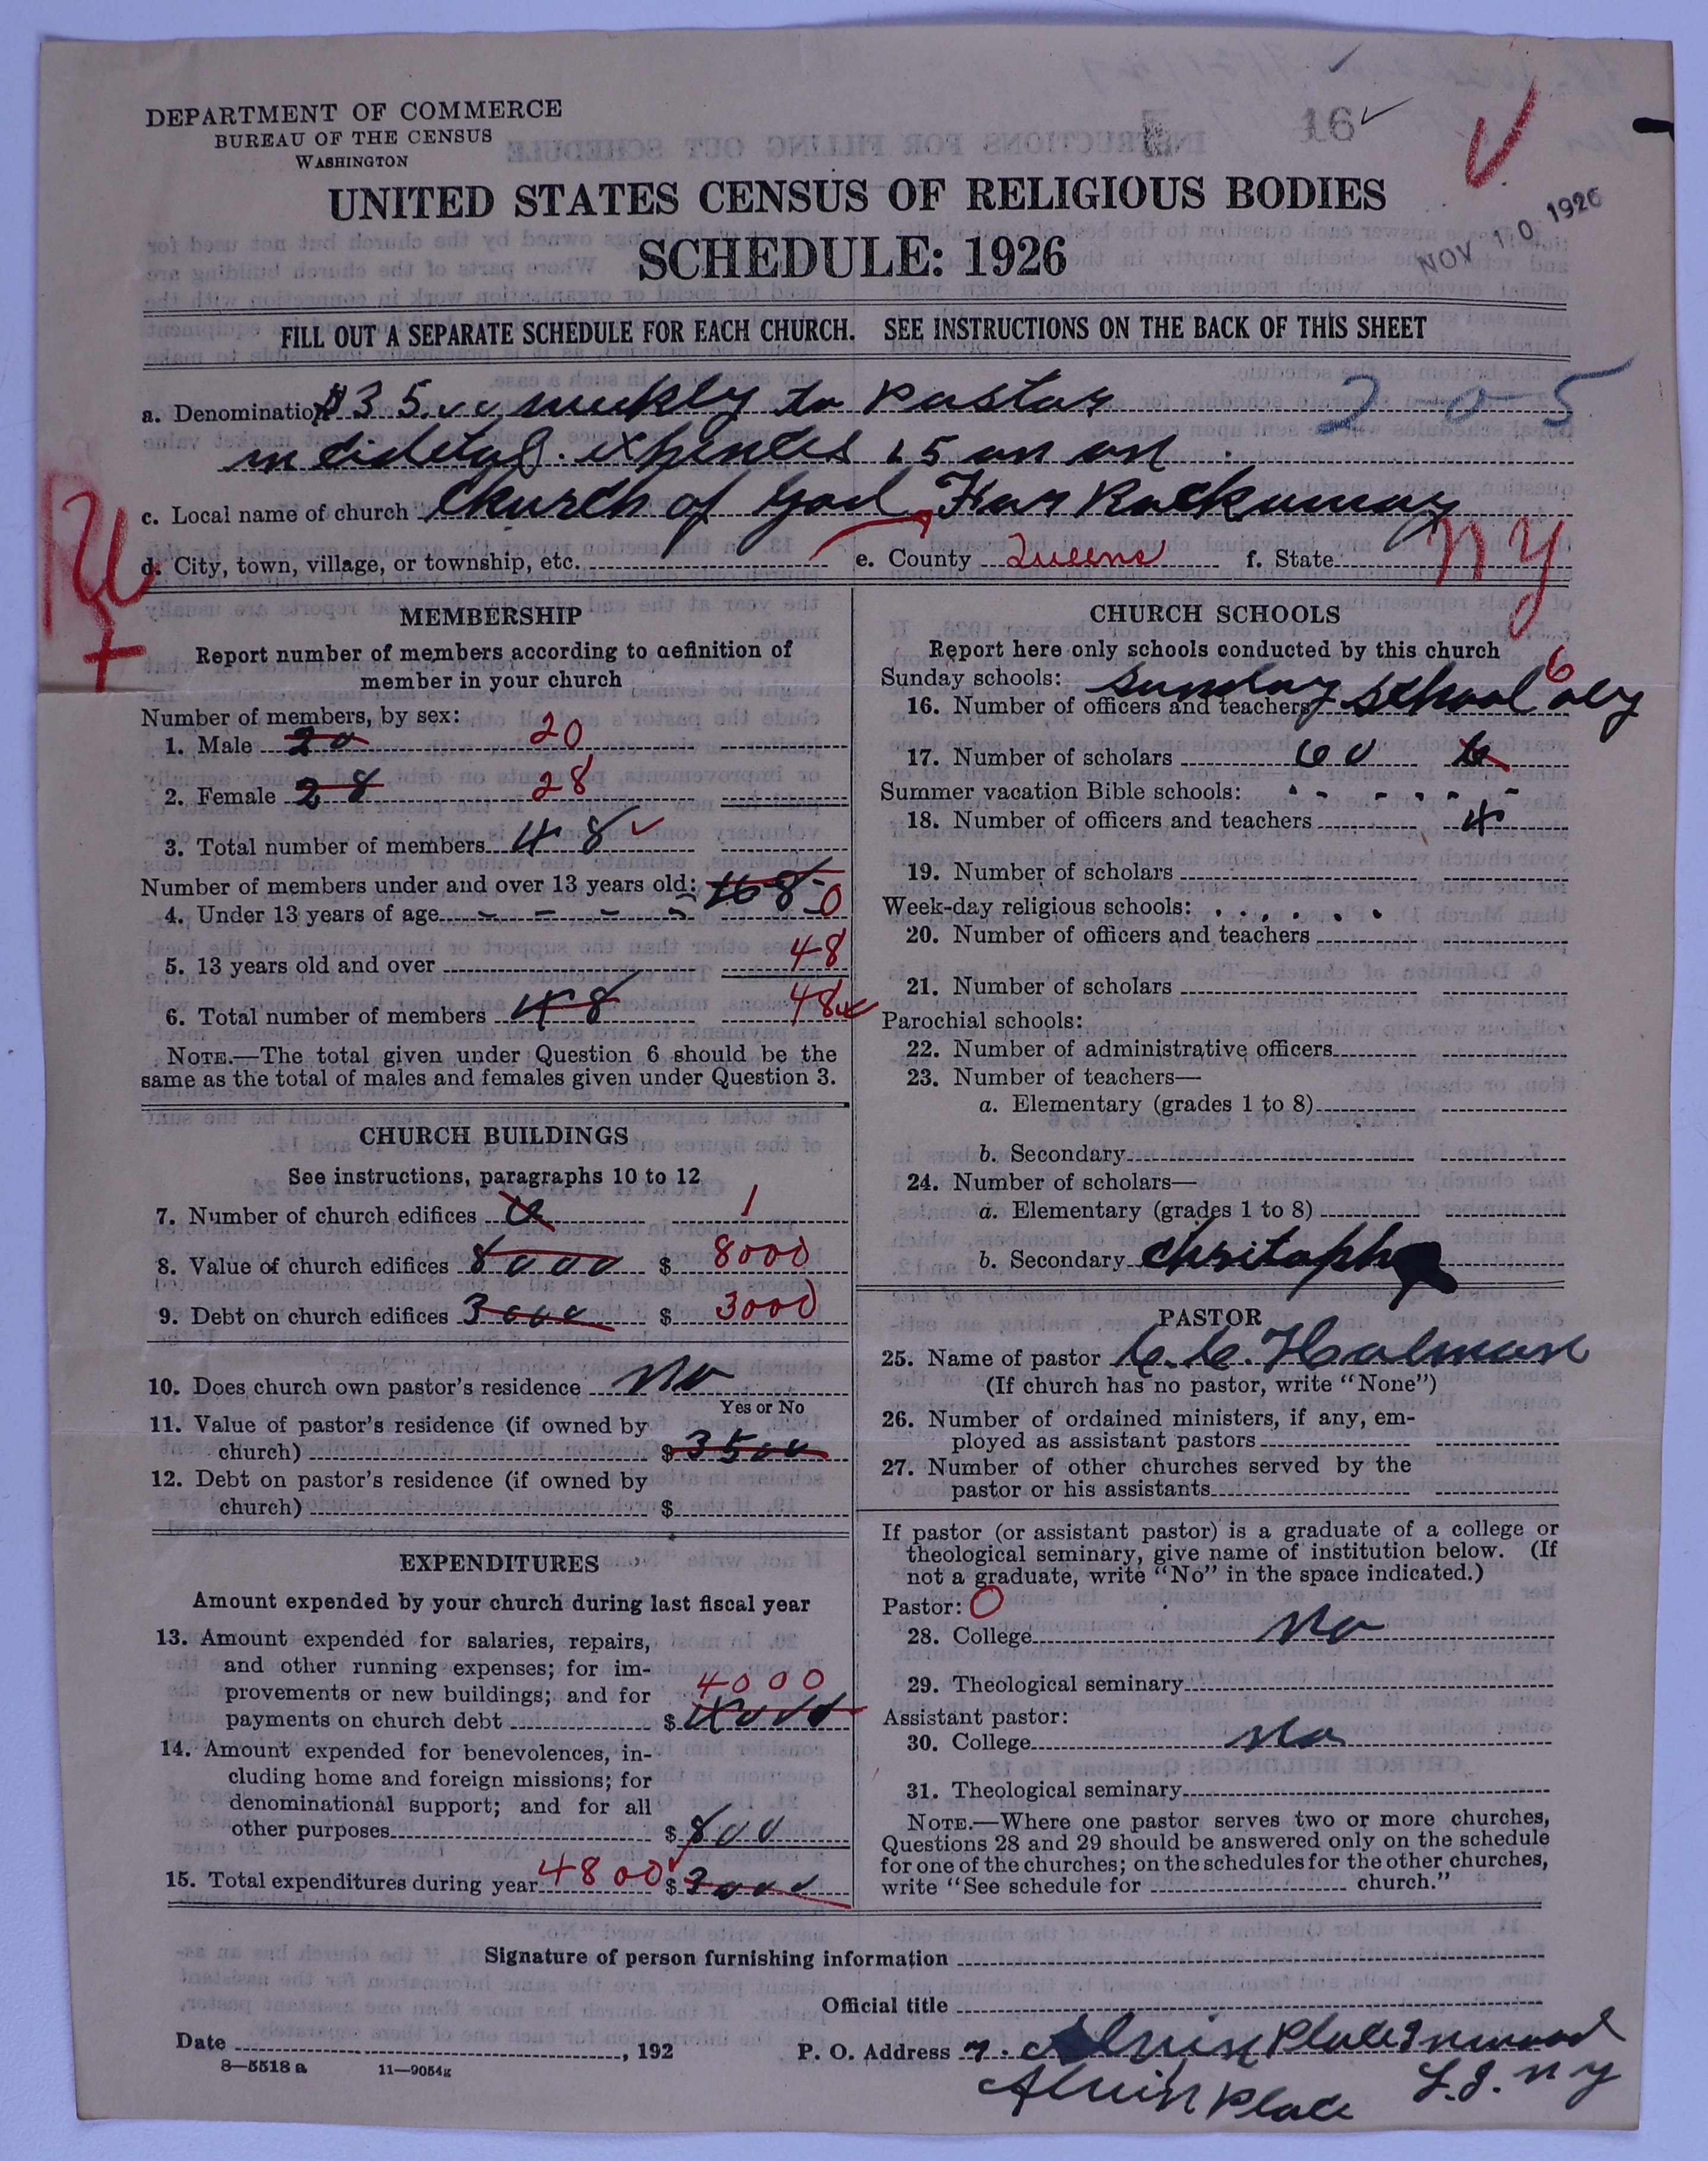 DEPARTMENT OF COMMERCE
BUREAU OF THE CENSUS
WASHINGTON
16
NOV 10 1926
UNITED STATES CENSUS OF RELIGIOUS BODIES
SCHEDULE: 1926
FILL OUT A SEPARATE SCHEDULE FOR EACH CHURCH. SEE INSTRUCTIONS ON THE BACK OF THIS SHEET
a. Denomination $35.00 weekly to Pastor 2-0-5
15
c. Local name of church Church of God Far Rockaway
d. City, town, village, or township, etc. e. County Queens f. State NY
MEMBERSHIP
Report number of members according to definition of
member in your church
Number of members, by sex:
1. Male 20 20
2. Female 28 28
3. Total number of members 48
Number of members under and over 13 years old:
4. Under 13 years of age 0
5. 13 years old and over 48
6. Total number of members 48 48
NOTE.—The total given under Question 6 should be the
same as the total of males and females given under Question 3.
CHURCH BUILDINGS
See instructions, paragraphs 10 to 12
7. Number of church edifices 1
8. Value of church edifices 8000 $ 8000
9. Debt on church edifices 3000 $ 3000
10. Does church own pastor's residence No
Yes or No
11. Value of pastor's residence (if owned by
church) $ 3500
12. Debt on pastor's residence (if owned by
church) $
EXPENDITURES
Amount expended by your church during last fiscal year
13. Amount expended for salaries, repairs,
and other running expenses; for im-
provements or new buildings; and for 4000
payments on church debt $ 4000
14. Amount expended for benevolences, in-
cluding home and foreign missions; for
denominational support; and for all
other purposes $ 800
15. Total expenditures during year 4800 $ 3000
CHURCH SCHOOLS
Report here only schools conducted by this church
Sunday schools: Sunday School 6
16. Number of officers and teachers
17. Number of scholars 60
Summer vacation Bible schools:
18. Number of officers and teachers 4
19. Number of scholars
Week-day religious schools:
20. Number of officers and teachers
21. Number of scholars
Parochial schools:
22. Number of administrative officers
23. Number of teachers—
a. Elementary (grades 1 to 8)
b. Secondary
24. Number of scholars—
a. Elementary (grades 1 to 8)
b. Secondary
PASTOR
25. Name of pastor C. C. Holman
(If church has no pastor, write "None")
26. Number of ordained ministers, if any, em-
ployed as assistant pastors
27. Number of other churches served by the
pastor or his assistants
If pastor (or assistant pastor) is a graduate of a college or
theological seminary, give name of institution below. (If
not a graduate, write "No" in the space indicated.)
Pastor: 0
28. College No
29. Theological seminary
Assistant pastor:
30. College No
31. Theological seminary
NOTE.—Where one pastor serves two or more churches,
Questions 28 and 29 should be answered only on the schedule
for one of the churches; on the schedules for the other churches,
write "See schedule for church."
Signature of person furnishing information
Official title
Date , 192
P. O. Address 7. Alvin Place Inwood
Alvin Place L.I. N Y
8—5518 a 11—9054g